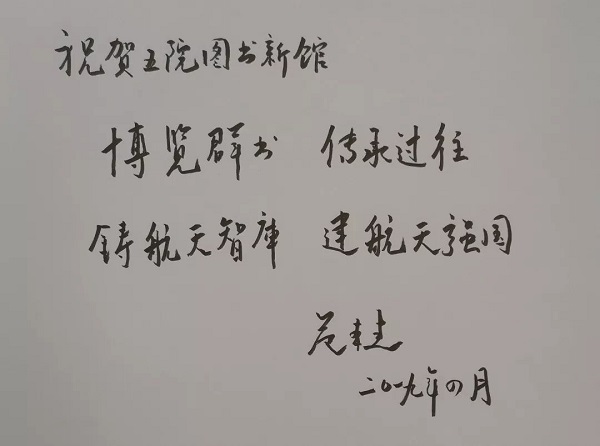 祝贺五院图书新馆
博览群书 传承过往
铸航天智庫 建航天强国
二〇一九年四月